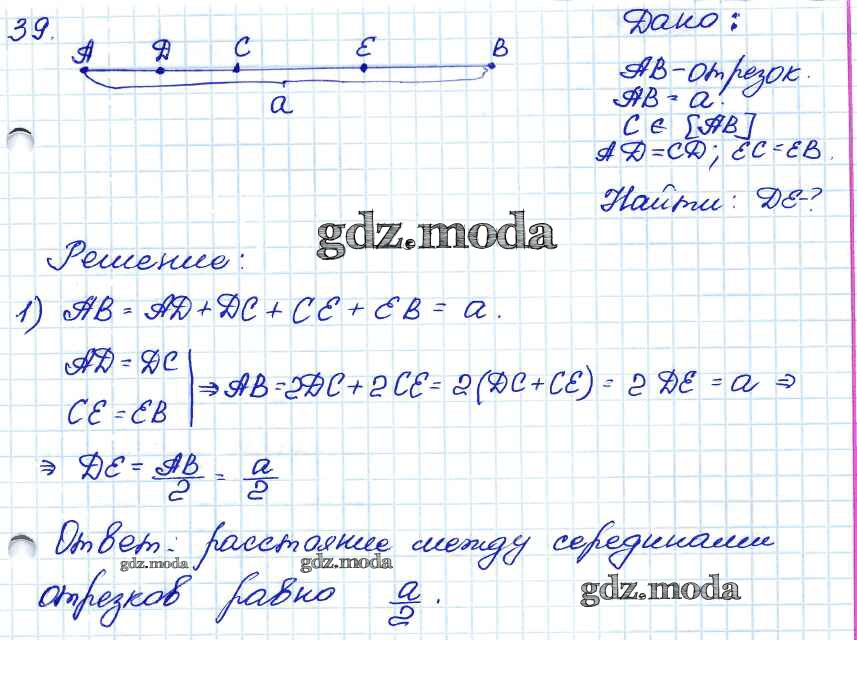 39.
A D C E B
a
Дано:
AB - отрезок.
AB = a.
C ∈ [AB]
AD = CD; EC = EB.
Найти: DE - ?
gdz.moda
Решение:
1) AB = AD + DC + CE + EB = a.
AD = DC
CE = EB
⇒ AB = 2DC + 2CE = 2(DC + CE) = 2DE = a ⇒
⇒ DE = AB/2 = a/2
Ответ: расстояние между серединами
gdz.moda gdz.moda
отрезков равно a/2.
gdz.moda